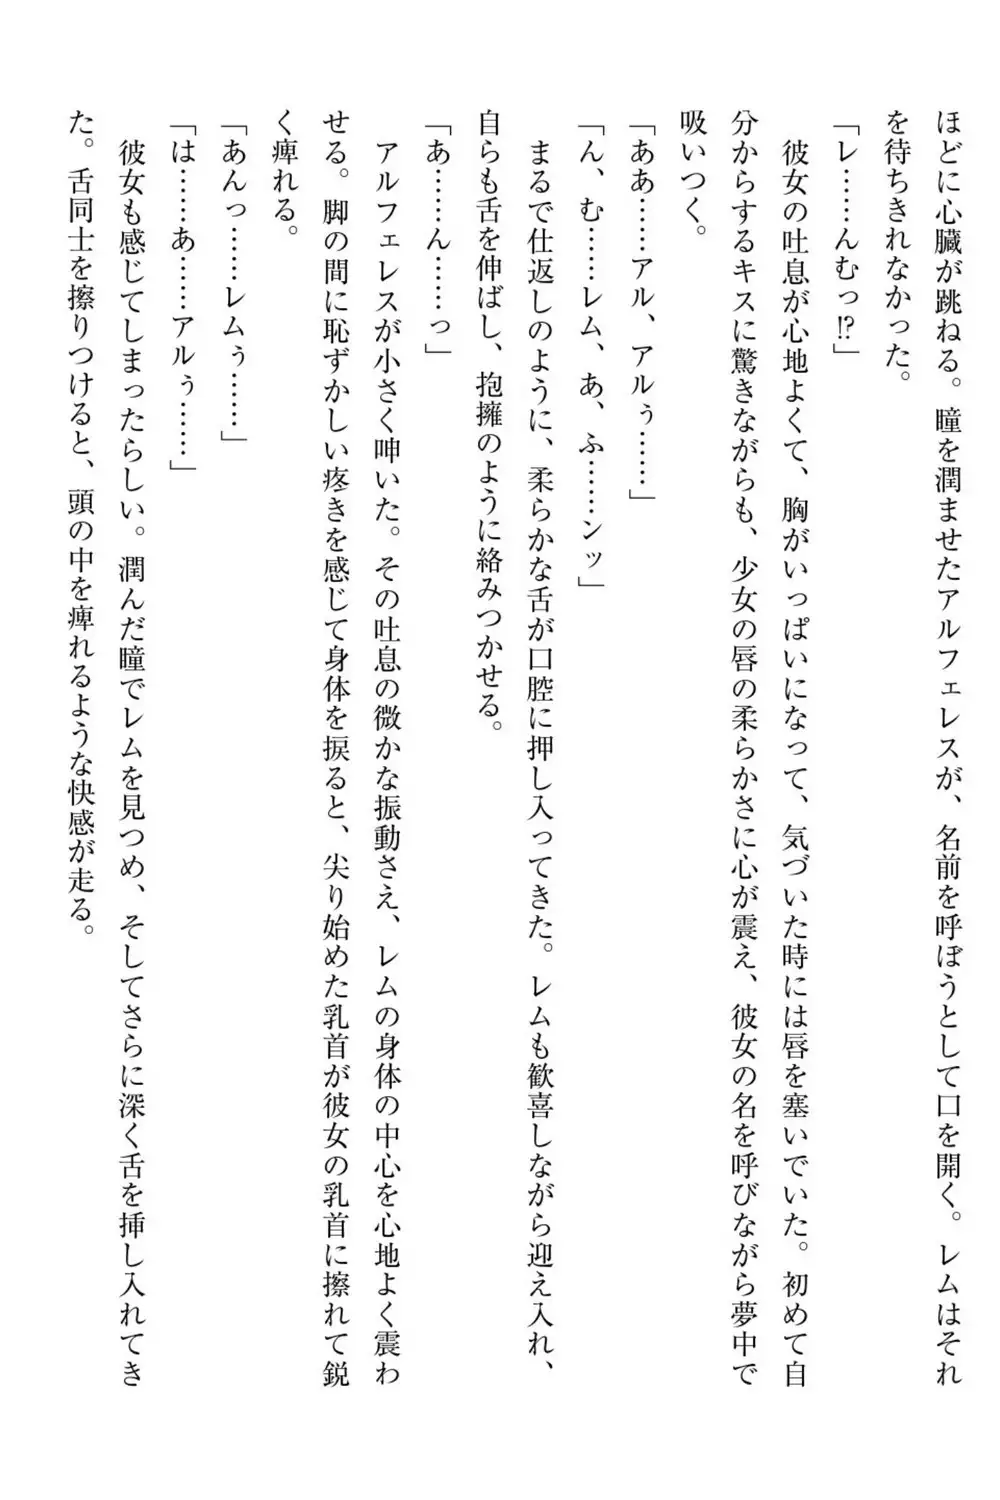 ほどに心臓が跳ねる。瞳を潤ませたアルフェレスが、名前を呼ぼうとして口を開く。レムはそれ
を待ちきれなかった。
「レ……んむっ!?」
彼女の吐息が心地よくて、胸がいっぱいになって、気づいた時には唇を塞いでいた。初めて自
分からするキスに驚きながらも、少女の唇の柔らかさに心が震え、彼女の名を呼びながら夢中で
吸いつく。
「ああ……アル、アルぅ……」
「ん、む……レム、あ、ふ……ンッ」
まるで仕返しのように、柔らかな舌が口腔に押し入ってきた。レムも歓喜しながら迎え入れ、
自らも舌を伸ばし、抱擁のように絡みつかせる。
「あ……ん……っ」
アルフェレスが小さく呻いた。その吐息の微かな振動さえ、レムの身体の中心を心地よく震わ
せる。脚の間に恥ずかしい疼きを感じて身体を捩ると、尖り始めた乳首が彼女の乳首に擦れて鋭
く痺れる。
「あんっ……レムぅ……」
「は……あ……アルぅ……」
彼女も感じてしまったらしい。潤んだ瞳でレムを見つめ、そしてさらに深く舌を挿し入れてき
た。舌同士を擦りつけると、頭の中を痺れるような快感が走る。